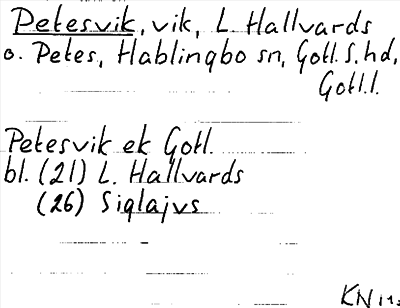 Petesvik, vik, L. Hallvards
o. Petes, Hablingbo sn, Gotl. S. hd,
Gotl. l.
Petesvik ek Gotl.
bl. (21) L. Hallvards
(26) Siglajvs
KN